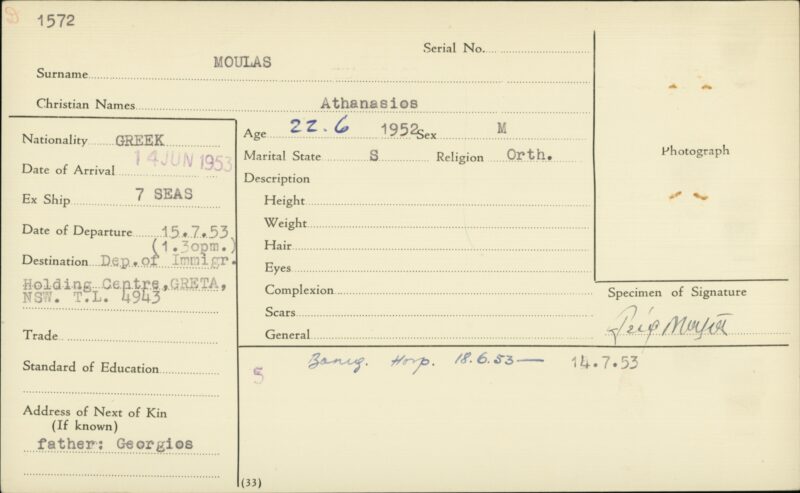 D 1572
Serial No.
Surname MOULAS
Christian Names Athanasios
Nationality GREEK
Date of Arrival 14 JUN 1953
Ex Ship 7 SEAS
Date of Departure 15.7.53
(1.30pm.)
Destination Dep.of Immigr.
Holding Centre, GRETA,
NSW. T.L. 4943
Trade
Standard of Education
Address of Next of Kin
(If known)
father: Georgios
Age 22.6 1952 Sex M
Marital State S Religion Orth.
Description
Height
Weight
Hair
Eyes
Complexion
Scars
General
Photograph
Specimen of Signature
S Boneg. Hosp. 18.6.53 — 14.7.53
(33)